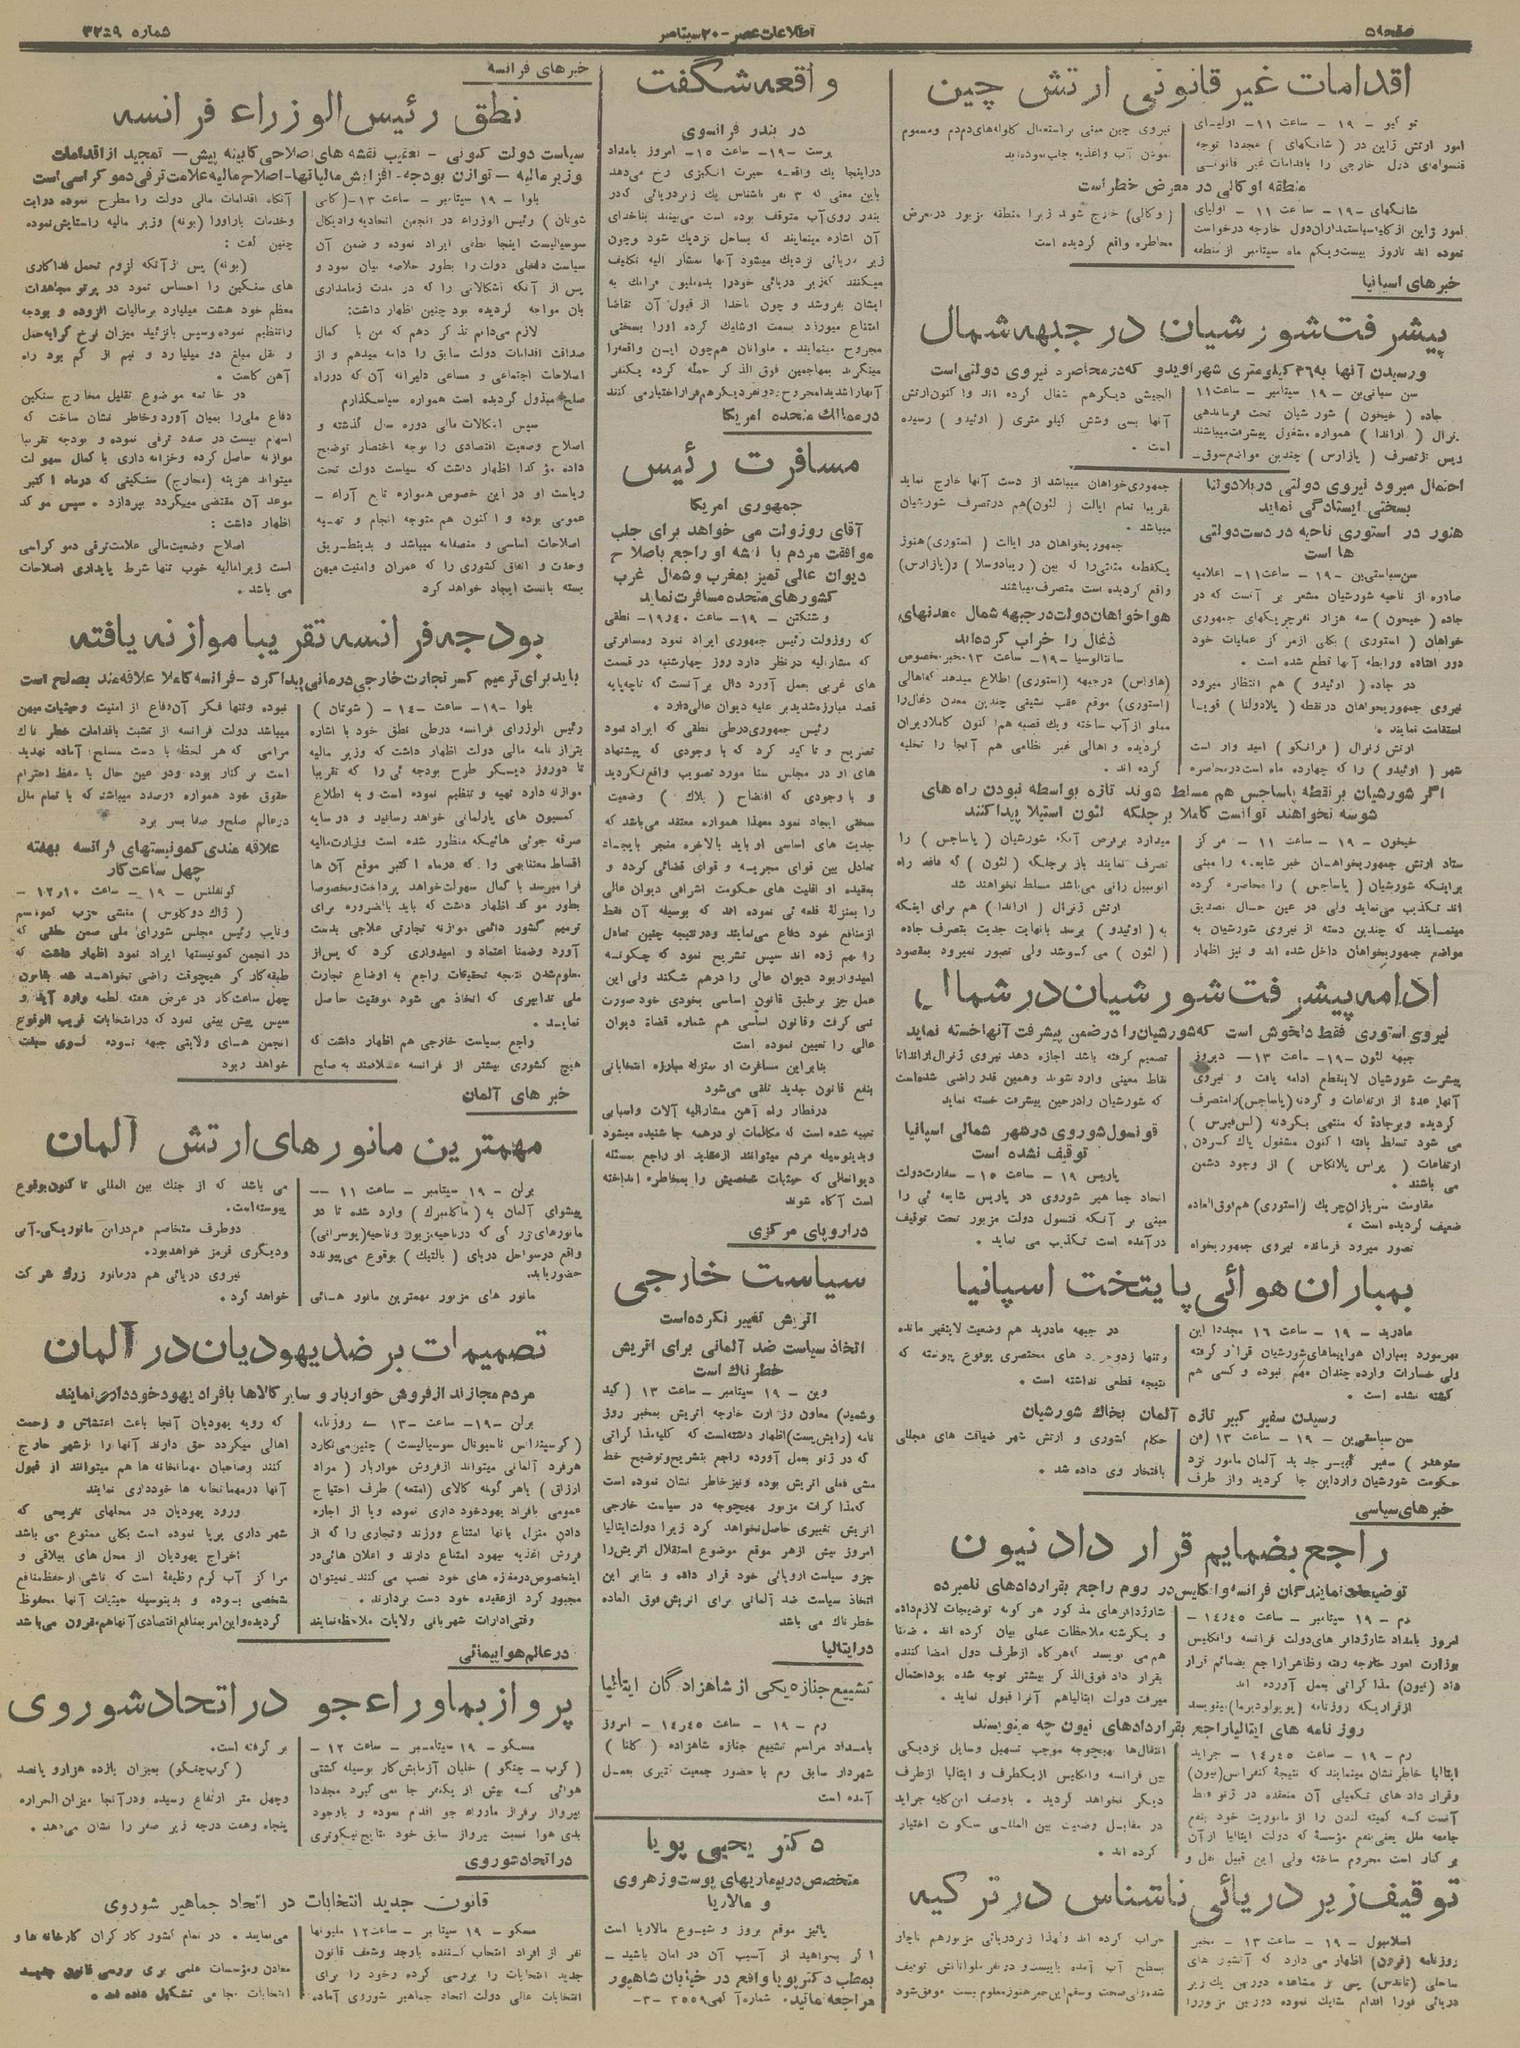 صفحه ۵
اطلاعات عصر - ۲۰ سپتامبر
شماره ۳۲۵۹
اقدامات غیر قانونی ارتش چین
توکیو - ۱۹ - ساعت ۱۱ - اولیای
امور ارتش ژاپن در ( شانگهای ) مجددا توجه
قنسولهای دول خارجی را باقدامات غیر قانونی
نیروی چین مبنی بر استعمال گلوله‌های دم‌دم و مسموم
نمودن آب و اغذیه جلب نموده‌اند
منطقه اوکالی در معرض خطر است
شانگهای - ۱۹ - ساعت ۱۱ - اولیای
امور ژاپن از کلیه سیاستمداران دول خارجه درخواست
نموده اند تا روز بیست و یکم ماه سپتامبر از منطقه
( وکالی ) خارج شوند زیرا منطقه مزبور در معرض
مخاطره واقع گردیده است
خبرهای اسپانیا
پیشرفت شورشیان در جبهه شمال
و رسیدن آنها به ۳۶ کیلومتری شهر اویدو که در محاصره نیروی دولتی است
جاده ( خیخون ) شورشیان تحت فرماندهی
ژنرال ( اراندا ) همواره مشغول پیشرفت میباشند
آنها بسی وشش کیلو متری ( اوئیدو ) رسیده
است .
احتمال میرود نیروی دولتی در بلادولنا
بسختی ایستادگی نماید
هنور در استوری ناحیه در دست دولتی
ها است
صادره از ناحیه شورشیان مشعر بر آنست که در
جاده ( خیخون ) سه هزار نفر چریکهای جمهوری
خواهان ( استوری ) بکلی از مرکز عملیات خود
دور افتاده و رابطه آنها قطع شده است .
در جاده ( اوئیدو ) هم انتظار میرود
نیروی جمهوریخواهان در نقطه ( یلادولنا ) قویا
استقامت نمایند .
ارتش ژنرال ( فرانکو ) امید وار است
شهر ( اوئیدو ) را که چهارده ماه است در محاصره
جمهوری‌خواهان میباشد از دست آنها خارج نماید
تقریبا تمام ایالت ( لئون ) هم در تصرف شورشیان
میباشد .
جمهوریخواهان در ایالت ( استوری ) هنوز
یکقطعه مثلثی را که بین ( ریبادوسلا ) و ( پازارس )
واقع گردیده است متصرف میباشند
هواخواهان دولت در جبهه شمال معدنهای
ذغال را خراب کرده‌اند
سانتالوسیا - ۱۹ - ساعت ۱۳ - خبر مخصوص
( هاواس ) در جبهه ( استوری ) اطلاع میدهد که اهالی
( استوری ) موقع عقب نشینی چندین معدن ذغال را
مملو از آب ساخته و یک قصبه هم اکنون کاملا ویران
گردیده و اهالی غیر نظامی هم آنجا را تخلیه
کرده اند .
اگر شورشیان بر نقطه پاساجس هم مسلط شوند تازه بواسطه نبودن راه های
شوسه نخواهند توانست کاملا بر جلگه لئون استیلا پیدا کنند
خیخون - ۱۹ - ساعت ۱۱ - مرکز
ستاد ارتش جمهوریخواهان خبر شایعه را مبنی
براینکه شورشیان ( پاساجس ) را محاصره کرده
اند تکذیب می‌نماید ولی در عین حال تصدیق
مینمایند که چندین دسته از نیروی شورشیان به
مواضع جمهوریخواهان داخل شده اند و نیز اظهار
میدارد برفرض آنکه شورشیان ( پاساجس ) را
تصرف نمایند باز بر جلگه ( لئون ) که فاقد راه
اتومبیل رانی می‌باشد مسلط نخواهند شد
ارتش ژنرال ( اراندا ) هم برای اینکه
به ( اوئیدو ) برسد بانهایت جدیت بتصرف جاده
( لئون ) می کوشد ولی تصور نمیرود بمقصود
ادامه پیشرفت شورشیان در شمال
نیروی استوری فقط دلخوش است که شورشیان را در ضمن پیشرفت آنها خسته نماید
جبهه لئون - ۱۹ - ساعت ۱۳ - دیروز
پیشرفت شورشیان لاینقطع ادامه یافت و نیروی
آنها عده از ارتفاعات و گردنه ( پاساجس ) را متصرف
گردیده و بر جاده که منتهی بگردنه
می شود تسلط یافته اکنون مشغول پاک کردن
ارتفاعات ( پراس پلانکاس ) از وجود دشمن
می باشند .
مقاومت سربازان چریک ( استوری ) هم فوق العاده
ضعیف گردیده است .
تصور میرود فرمانده نیروی جمهوریخواه
تصمیم گرفته باشد اجازه دهد نیروی ژنرال اراندا تا
نقاط معینی وارد شوند و همین قدر راضی شده‌است
که شورشیان را در حین پیشرفت خسته نماید
قونسول شوروی در شهر شمالی اسپانیا
توقیف نشده است
پاریس ۱۹ - ساعت ۱۵ - سفارت دولت
اتحاد جماهیر شوروی در پاریس شایعه ئی را
مبنی بر آنکه قنسول دولت مزبور تحت توقیف
درآمده است تکذیب می نماید .
بمباران هوائی پایتخت اسپانیا
مادرید - ۱۹ - ساعت ۱۶ مجددا این
شهر مورد بمباران هواپیماهای شورشیان قرار گرفته
ولی خسارات وارده چندان مهم نبوده و کسی هم
کشته نشده است .
در جبهه مادرید هم وضعیت لایتغیر مانده
و تنها زدوخورد های مختصری بوقوع پیوسته که
نتیجه قطعی نداشته است .
رسیدن سفیر کبیر تازه آلمان بخاک شورشیان
ستوهرر ) سفیر کبیر جدید آلمان مامور نزد
حکومت شورشیان وارد این جا گردید و از طرف
حکام کشوری و ارتش شهر ضیافت های مجللی
بافتخار وی داده شد .
خبرهای سیاسی
راجع بضمایم قرار داد نیون
توضیحات نمایندگان فرانسه و انگلیس در روم راجع بقراردادهای نامبرده
رم - ۱۹ سپتامبر - ساعت ۱۴٫۴۵ -
امروز بامداد شارژدافر های دولت فرانسه و انگلیس
بوزارت امور خارجه رفته و ظاهرا راجع بضمائم قرار
داد ( نیون ) مذاکراتی بعمل آورده اند
شارژدافرهای مذکور هر گونه توضیحات لازم داده
و یکرشته ملاحظات عملی بیان کرده اند . ضمنا
هم می نویسد که هر گاه از طرف دول امضا کننده
بقرار داد فوق الذکر بیشتر توجه شده بود احتمال
میرفت دولت ایتالیا هم آنرا قبول نماید .
روزنامه های ایتالیا راجع بقراردادهای نیون چه مینویسند
رم - ۱۹ - ساعت ۱۴٫۴۵ - جراید
ایتالیا خاطر نشان مینمایند که نتیجه کنفرانس ( نیون )
و قرار داد های تکمیلی آن منعقده در ژنو فقط
آنست که کمیته لندن را از ماموریت خود بنفع
جامعه ملل یعنی بنفع مؤسسهٔ که دولت ایتالیا از آن
بر کنار است محروم ساخته ولی این قبیل نقل و
انتقال‌ها بهیچوجه موجب تسهیل وسایل نزدیکی
بین فرانسه و انگلیس از یکطرف و ایتالیا از طرف
دیگر نخواهد گردید . باوصف این کلیه جراید
در مقابل وضعیت بین المللی سکوت اختیار
کرده اند .
توقیف زیر دریائی ناشناس در ترکیه
اسلامبول - ۱۹ - ساعت ۱۳ - مخبر
خراب کرده اند و لهذا زیردریائی مزبور هم ناچار
بسطح آب آمده
واقعه شگفت
در بندر فرانسوی
برست - ۱۹ - ساعت ۱۵ - امروز بامداد
در اینجا یک واقعه حیرت انگیزی رخ می‌دهد
باین معنی که ۳ نفر ناشناس یک زیردریائی که در
بندر روی آب متوقف بوده است می‌بینند بناخدای
آن اشاره مینمایند که بساحل نزدیک شود و چون
زیر دریائی نزدیک میشود آنها بمشار الیه تکلیف
میکنند که زیر دریائی خود را بده ملیون فرانک به
ایشان بفروشد و چون ناخدا از قبول آن تقاضا
امتناع میورزد بسمت او شلیک کرده او را بسختی
مجروح مینمایند . ملوانان هم چون این واقعه را
مینگرند بمهاجمین فوق الذکر حمله کرده یکنفر
آنها را شدیدا مجروح و دو نفر دیگر هم فرار اختیار می کنند
در ممالک متحده امریکا
مسافرت رئیس
جمهوری امریکا
آقای روزولت می خواهد برای جلب
موافقت مردم با نقشه او راجع باصلاح
دیوان عالی تمیز بمغرب و شمال غرب
کشورهای متحده مسافرت نماید
وشنگتن - ۱۹ - ساعت ۱۹٫۴۰ - نطقی
که روزولت رئیس جمهوری ایراد نمود و مسافرتی
که مشارالیه در نظر دارد روز چهارشنبه در قسمت
های غربی بعمل آورد دال بر آنست که تا چه پایه
قصد مبارزه شدید بر علیه دیوان عالی دارد .
رئیس جمهوری در طی نطقی که ایراد نمود
تصریح و تاکید کرد که با وجودی که پیشنهاد
های او در مجلس سنا مورد تصویب واقع نگردید
و با وجودی که افتضاح ( بلاک ) وضعیت
سختی ایجاد نمود معهذا همواره معتقد می‌باشد که
جدیت های اساسی او باید بالاخره منجر بایجاد
تعادل بین قوای مجریه و قوای قضائی گردد و
بعقیده او اقلیت های حکومت اشرافی دیوان عالی
را بمنزلهٔ قلعه ئی نموده اند که بوسیله آن فقط
از منافع خود دفاع می‌نمایند و در نتیجه چنین تعادل
را بهم زده اند سپس تشریح نمود که چگونه
امیدوار بود دیوان عالی را درهم شکند ولی این
عمل جز بر طبق قانون اساسی بخودی خود صورت
نمی گرفت و قانون اساسی هم شماره قضاة دیوان
عالی را تعیین نموده است
بنابراین مسافرت او بمنزله مبارزه انتخاباتی
بنفع قانون جدید تلقی می‌شود
در قطار راه آهن مشارالیه آلات و اسبابی
تعبیه شده است که مکالمات او در همه جا شنیده میشود
و بدینوسیله مردم میتوانند از عقاید او راجع بمسئله
دیوانعالی که حیثیات شخصیش را بمخاطره انداخته
است آگاه شوند
در اروپای مرکزی
سیاست خارجی
اتریش تغییر نکرده است
اتخاذ سیاست ضد آلمانی برای اتریش
خطرناک است
وین - ۱۹ سپتامبر - ساعت ۱۳ ( گید
وشمید ) معاون وزارت خارجه اتریش بمخبر روز
نامه ( رایش‌پست ) اظهار داشته‌است که کلیه مذاکراتی
که در ژنو بعمل آورده راجع بتشریح و توضیح خط
مشی فعلی اتریش بوده و نیز خاطر نشان نموده است
که مذاکرات مزبور بهیچوجه در سیاست خارجی
اتریش تغییری حاصل نخواهد کرد زیرا دولت ایتالیا
امروز بیش از هر موقع موضوع استقلال اتریش را
جزو سیاست اروپائی خود قرار داده و بنابر این
اتخاذ سیاست ضد آلمانی برای اتریش فوق العاده
خطرناک می باشد
در ایتالیا
تشییع جنازه یکی از شاهزادگان ایتالیا
رم - ۱۹ - ساعت ۱۴٫۴۵ - امروز
بامداد مراسم تشییع جنازه شاهزاده ( کلنا )
شهردار سابق رم با حضور جمعیت کثیری بعمل
آمده است
دکتر یحیی پویا
متخصص در بیماریهای پوست و زهروی
و مالاریا
پائیز موقع بروز و شیوع مالاریا است
اگر بخواهید از آسیب آن در امان باشید -
بمطب دکتر پویا واقع در خیابان شاهپور
مراجعه نمائید . شماره آگهی ۲۵۵۹ - ۳
خبرهای فرانسه
نطق رئیس الوزراء فرانسه
سیاست دولت کنونی - تعقیب نقشه های اصلاحی کابینه پیش - تمجید از اقدامات
وزیر مالیه - توازن بودجه - افزایش مالیاتها - اصلاح مالیه علامت ترقی دموکراسی است
بلوا - ۱۹ سپتامبر - ساعت ۱۳ - ( کامی
شوتان ) رئیس الوزراء در انجمن اتحادیه رادیکال
سوسیالیست اینجا نطقی ایراد نموده و ضمن آن
سیاست داخلی دولت را بطور خلاصه بیان نمود و
پس از آنکه اشکالاتی را که در مدت زمامداری
بان مواجه گردیده بود چنین اظهار داشت :
لازم می‌دانم تذکر دهم که من با کمال
صداقت اقدامات دولت سابق را دامه میدهم و از
اصلاحات اجتماعی و مساعی دلیرانه آن که در راه
صلح مبذول گردیده است همواره سپاسگذارم
سپس اشکالات مالی دوره سال گذشته و
اصلاح وضعیت اقتصادی را بوجه اختصار توضیح
داده مؤکدا اظهار داشت که سیاست دولت تحت
ریاست او در این خصوص همواره تابع آراء
عمومی بوده و اکنون هم متوجه انجام و تهیه
اصلاحات اساسی و منصفانه میباشد و بدینطریق
وحدت و اتفاق کشوری را که عمران و امنیت میهن
بسته بانست ایجاد خواهد کرد
آنگاه اقدامات مالی دولت را مطرح نموده درایت
و خدمات باراورا ( بونه ) وزیر مالیه را ستایش نموده
چنین گفت :
( بونه ) پس از آنکه لزوم تحمل فداکاری
های سنگین را احساس نمود در پرتو مجاهدات
معظم خود هشت میلیارد بر مالیات افزوده و بودجه
را تنظیم نموده و سپس باتزئید میزان نرخ کرایه حمل
و نقل مبلغ دو میلیارد و نیم از کم بود راه
آهن کاست .
در خاتمه موضوع تقلیل مخارج سنگین
دفاع ملی را بمیان آورد و خاطر نشان ساخت که
اسهام بیست در صد ترقی نموده و بودجه تقریبا
موازنه حاصل کرده و خزانه داری با کمال سهولت
میتواند هزینه ( مخارج ) سنگینی که در ماه اکتبر
موعد آن مقتضی میگردد بپردازد . سپس موکد
اظهار داشت :
اصلاح وضعیت مالی علامت ترقی دموکراسی
است زیرا مالیه خوب تنها شرط پایداری اصلاحات
می باشد .
بودجه فرانسه تقریبا موازنه یافته
باید برای ترمیم کسر تجارت خارجی درمانی پیدا کرد - فرانسه کاملا علاقه‌مند بصلح است
بلوا - ۱۹ - ساعت ۱۴ - ( شوتان )
رئیس الوزرای فرانسه در طی نطق خود با اشاره
بتراز نامه مالی دولت اظهار داشت که وزیر مالیه
تا دو روز دیگر طرح بودجه ئی را که تقریبا
موازنه دارد تهیه و تنظیم نموده است و به اطلاع
کمسیون های پارلمانی خواهد رسانید و در سایه
صرفه جوئی هائیکه منظور شده است وزارت مالیه
اقساط معتنابهی را که در ماه اکتبر موقع آن ها
فرا میرسد با کمال سهولت خواهد پرداخت و مخصوصا
بطور موکد اظهار داشت که باید بالضروره برای
ترمیم کشور دائمی موازنه تجارتی علاجی بدست
آورد و ضمنا اعتماد و امیدواری کرد که پس از
معلوم شدن نتیجه تحقیقات راجع به اوضاع تجارت
ملی تدابیری که اتخاذ می شود موفقیت حاصل
نمایند .
راجع بسیاست خارجی هم اظهار داشت که
هیچ کشوری بیشتر از فرانسه علاقمند به صلح
نبوده و تنها فکر آن دفاع از امنیت و حیثیات میهن
میباشد دولت فرانسه از تشبث باقدامات خطرناک
مرامی که هر لحظه با دست مسلح آماده تهدید
است بر کنار بوده و در عین حال با حفظ احترام
حقوق خود همواره درصدد میباشد که با تمام ملل
در عالم صلح و صفا بسر برد
علاقه مندی کمونیستهای فرانسه بهفته
چهل ساعت کار
کونفلنس - ۱۹ - ساعت ۱۲٫۱۰ -
( ژاک دوکلوس ) منشی حزب کمونیسم
و نایب رئیس مجلس شورای ملی ضمن نطقی که
در انجمن کمونیستها ایراد نمود اظهار داشت که
طبقه کارگر هیچوقت راضی نخواهد شد بقانون
چهل ساعت کار در عرض هفته لطمه وارد آید و
سپس پیش بینی نمود که در انتخابات قریب الوقوع
انجمن های ولایتی جبهه توده گوی سبقت
خواهد ربود
خبر های آلمان
مهمترین مانورهای ارتش آلمان
برلن - ۱۹ سپتامبر - ساعت ۱۱ -
پیشوای آلمان به ( ماکلمبرک ) وارد شده تا در
واقع در سواحل دریای ( بالتیک ) بوقوع می‌پیوندد
حضور یابد .
مانور های مزبور مهمترین مانور هائی
می باشد که از جنگ بین المللی تاکنون بوقوع
پیوسته است .
دو طرف متخاصم هم در این مانور یکی آبی
و دیگری قرمز خواهد بود .
نیروی دریائی هم در مانور بزرگ شرکت
خواهد کرد .
تصمیمات بر ضد یهودیان در آلمان
مردم مجازند از فروش خواربار و سایر کالاها بافراد یهود خودداری نمایند
برلن - ۱۹ - ساعت ۱۳ - روزنامه
هر فرد آلمانی میتواند از فروش خواربار ( مراد
ارزاق ) باهر گونه کالای ( امتعه ) طرف احتیاج
عمومی بافراد یهود خود داری نموده و یا از اجاره
دادن منزل بانها امتناع ورزند و تجاری را که از
فروش اغذیه بیهود امتناع دارند و اعلان هائی در
اینخصوص در مغازه های خود نصب می کنند نمیتوان
مجبور کرد از عقیده خود دست بردارند .
وقتی ادارات شهربانی ولایات ملاحظه نمایند
که رویه یهودیان آنجا باعث اغتشاش و زحمت
اهالی میگردد حق دارند آنها را از شهر خارج
کنند و صاحبان مهمانخانه ها هم میتوانند از قبول
آنها در مهمانخانه ها خودداری نمایند
ورود یهودیان در محلهای تفریحی که
شهر داری برپا نموده است بکلی ممنوع می باشد
اخراج یهودیان از محل های ییلاقی و
مراکز آب گرم وظیفهٔ است که ناشی از حفظ منافع
شخصی بوده و بدینوسیله حیثیات آنها محفوظ
گردیده و این امر بمنافع اقتصادی آنها هم مقرون می‌باشد
در عالم هواپیمائی
پرواز بماوراء جو در اتحاد شوروی
مسکو - ۱۹ سپتامبر - ساعت ۱۲ -
پرواز بر فراز ماوراء جو اقدام نموده و باوجود
بدی هوا نسبت بپرواز سابق خود نتایج نیکوتری
بر گرفته است .
وچهل متر ارتفاع رسیده و در آنجا میزان الحراره
پنجاه و هفت درجه زیر صفر را نشان می‌دهد .
در اتحاد شوروی
قانون جدید انتخابات در اتحاد جماهیر شوروی
مسکو - ۱۹ سپتامبر - ساعت ۱۲ ملیونها
نفر از افراد انتخاب کننده باوجد و شعف قانون
جدید انتخابات را بررسی کرده و خود را برای
انتخابات عالی دولت اتحاد جماهیر شوروی آماده
می‌نمایند . در تمام کشور کارگران کارخانه ها و
معادن و مؤسسات علمی برای بررسی قانون جدید
انتخابات مجامعی تشکیل داده اند .